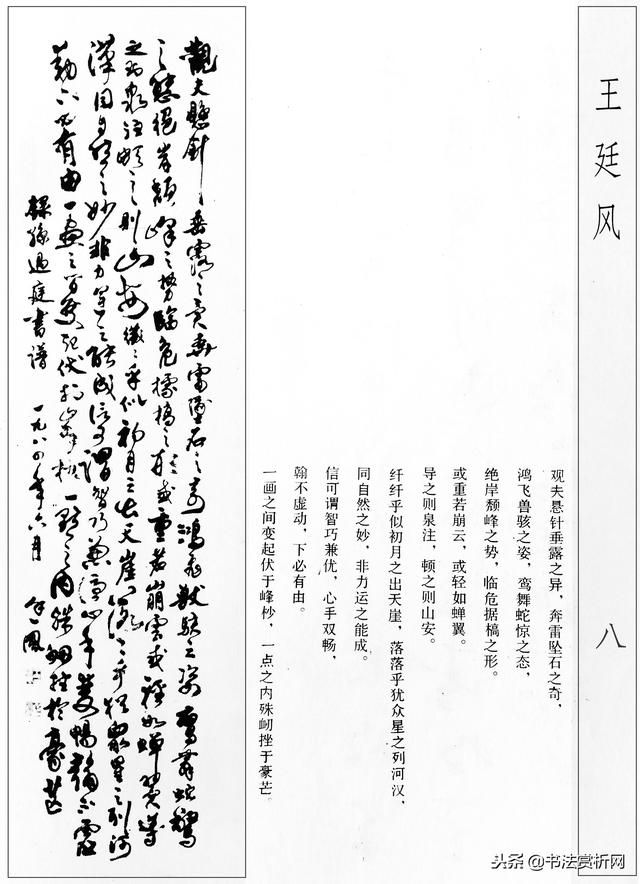 王廷风
八
观夫悬针垂露之异，奔雷坠石之奇，
鸿飞兽骇之姿，鸾舞蛇惊之态，
绝岸颓峰之势，临危据槁之形。
或重若崩云，或轻如蝉翼。
导之则泉注，顿之则山安。
纤纤乎似初月之出天崖，落落乎犹众星之列河汉，
同自然之妙，非力运之能成。
信可谓智巧兼优，心手双畅，
翰不虚动，下必有由。
一画之间变起伏于峰杪，一点之内殊衄挫于豪芒。
觀夫懸針垂露之異奔雷墜石之奇鴻飛獸駭之姿鸞舞蛇驚
之態絕岸頹峰之勢臨危據槁之形或重若崩雲或輕如蟬翼導
之則泉注頓之則山安纖纖乎似初月之出天崖落落乎猶眾星之列河
漢同自然之妙非力運之能成信可謂智巧兼優心手雙暢翰不虛
動下必有由一畫之間變起伏於峰杪一點之內殊衄挫於豪芒
錄孫過庭書譜 一九八四年六月 廷風
头条 @书法赏析网